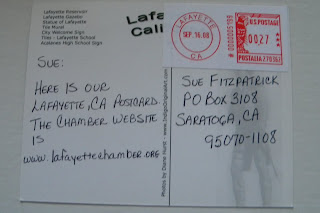 Lafayette Reservoir
Lafayette Gazebo
Statue of Lafayette
Tile Mural
City Welcome Sign
Tiles - Lafayette School
Acalanes High School Sign
Lafa
Cali
LAFAYETTE
SEP. 16.08
CA
US POSTAGE
0027
SUE:
HERE IS OUR
LAFAYETTE, CA POSTCARD.
THE CHAMBER WEBSITE
IS
www.lafayettechamber.org
Photos by Diane Hurst
SUE FITZPATRICK
PO BOX 3108
SARATOGA, CA
95070-1108